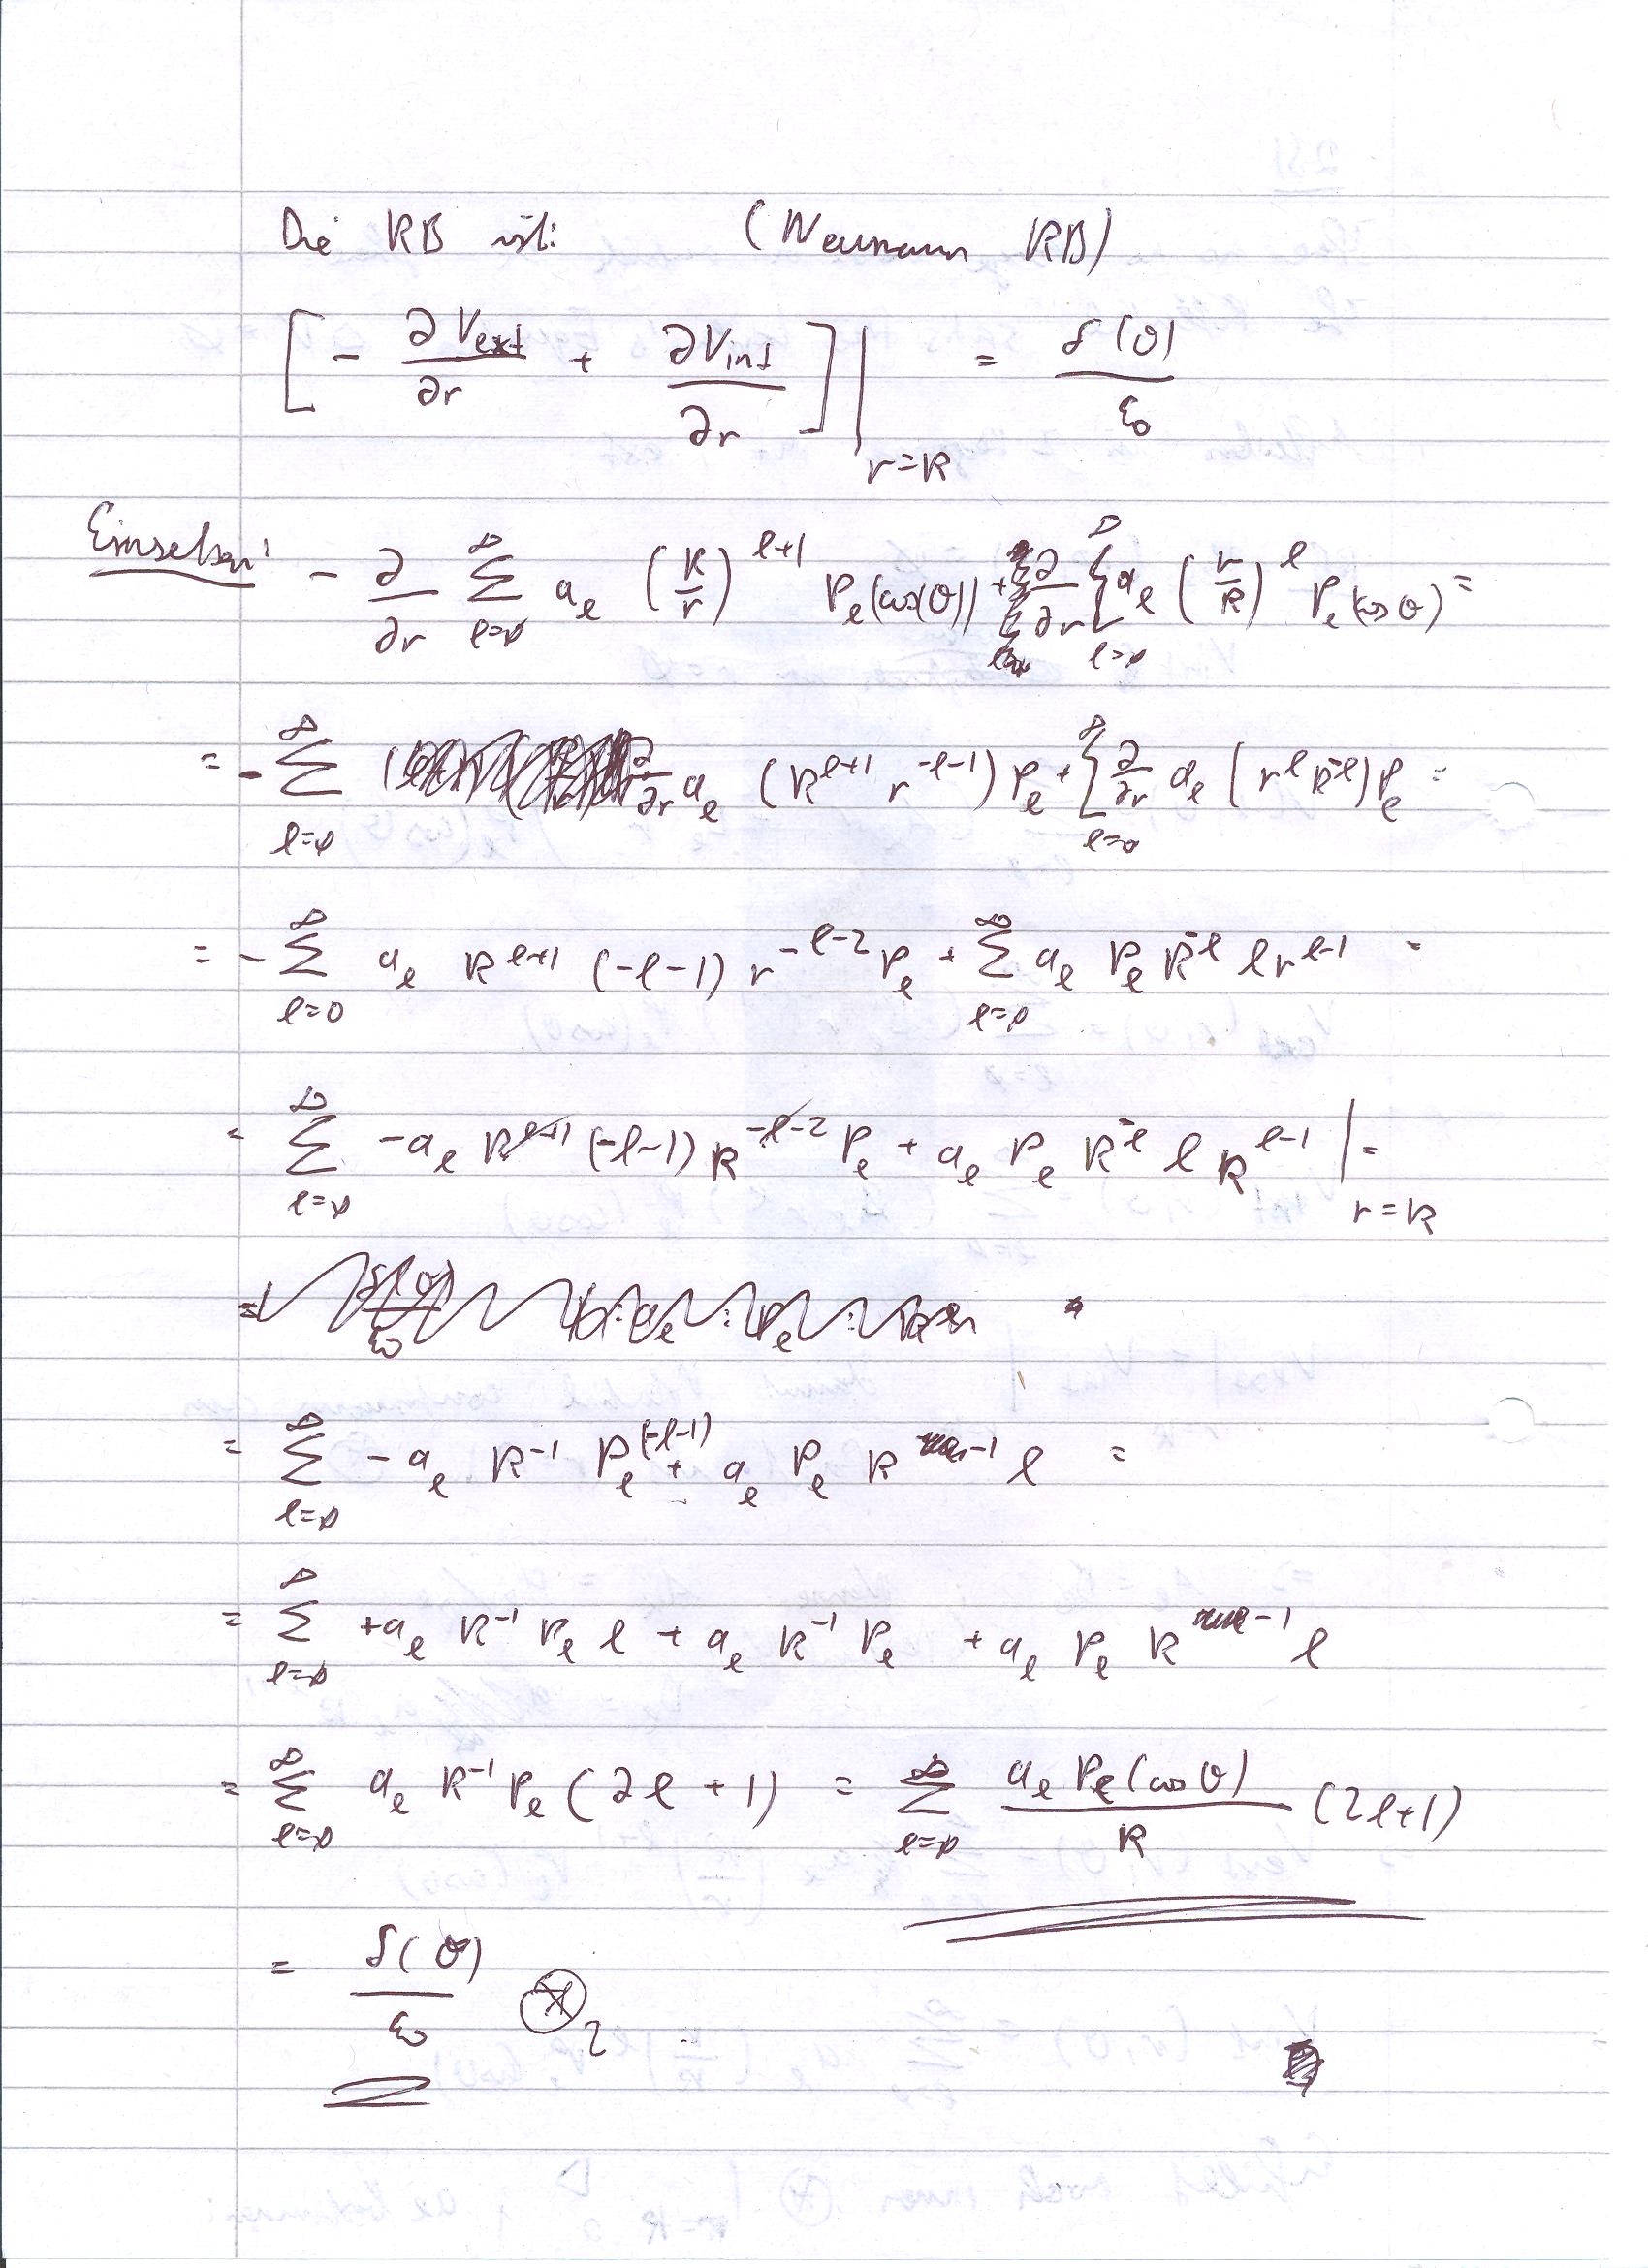 Die RB ist: (Neumann RB)
[ - ∂V_ext/∂r + ∂V_int/∂r ] |_{r=R} = σ(θ)/ε₀
Einsetzen: - ∂/∂r ∑_{l=0}^{∞} a_l (R/r)^{l+1} P_l(cos(θ)) + ∂/∂r ∑_{l=0}^{∞} a_l (r/R)^l P_l(cos θ) =
= - ∑_{l=0}^{∞} ∂/∂r a_l (R^{l+1} r^{-l-1}) P_l + ∑_{l=0}^{∞} ∂/∂r a_l (r^l R^{-l}) P_l =
= - ∑_{l=0}^{∞} a_l R^{l+1} (-l-1) r^{-l-2} P_l + ∑_{l=0}^{∞} a_l P_l R^{-l} l r^{l-1} =
= ∑_{l=0}^{∞} - a_l R^{l+1} (-l-1) R^{-l-2} P_l + a_l P_l R^{-l} l R^{l-1} |_{r=R} =
= ∑_{l=0}^{∞} - a_l R^{-1} P_l (-l-1) + a_l P_l R^{-1} l =
= ∑_{l=0}^{∞} + a_l R^{-1} P_l l + a_l R^{-1} P_l + a_l P_l R^{-1} l
= ∑_{l=0}^{∞} a_l R^{-1} P_l (2l + 1) = ∑_{l=0}^{∞} a_l P_l(cos θ)/R (2l+1)
= σ(θ)/ε₀ ⊛₂